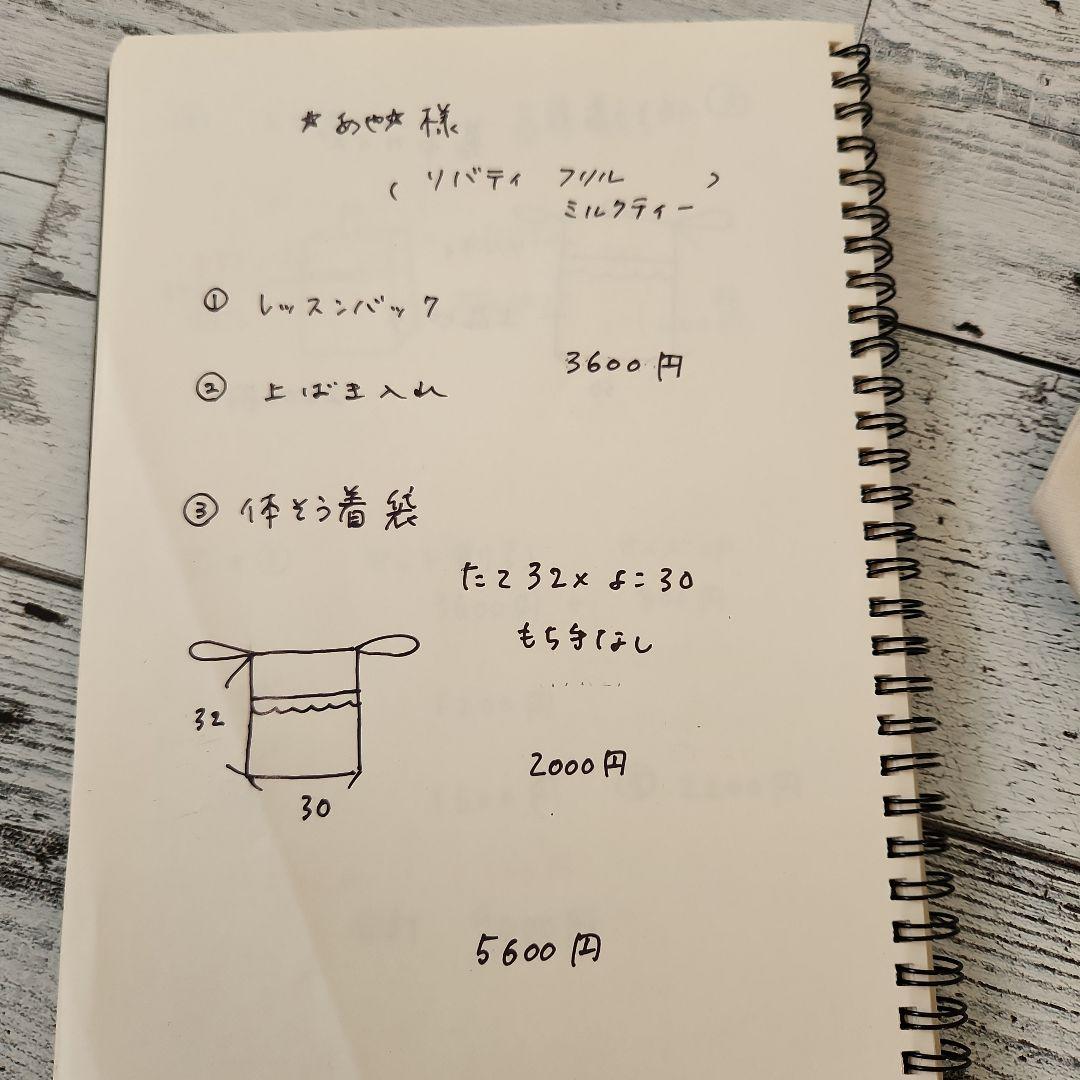 ☆あや☆ 様
( リバティ フリル )
ミルクティー
① レッスンバック
3600円
② 上ばき入れ
③ 体そう着袋
たて32×よこ30
もち手なし
32
2000円
30
5600円